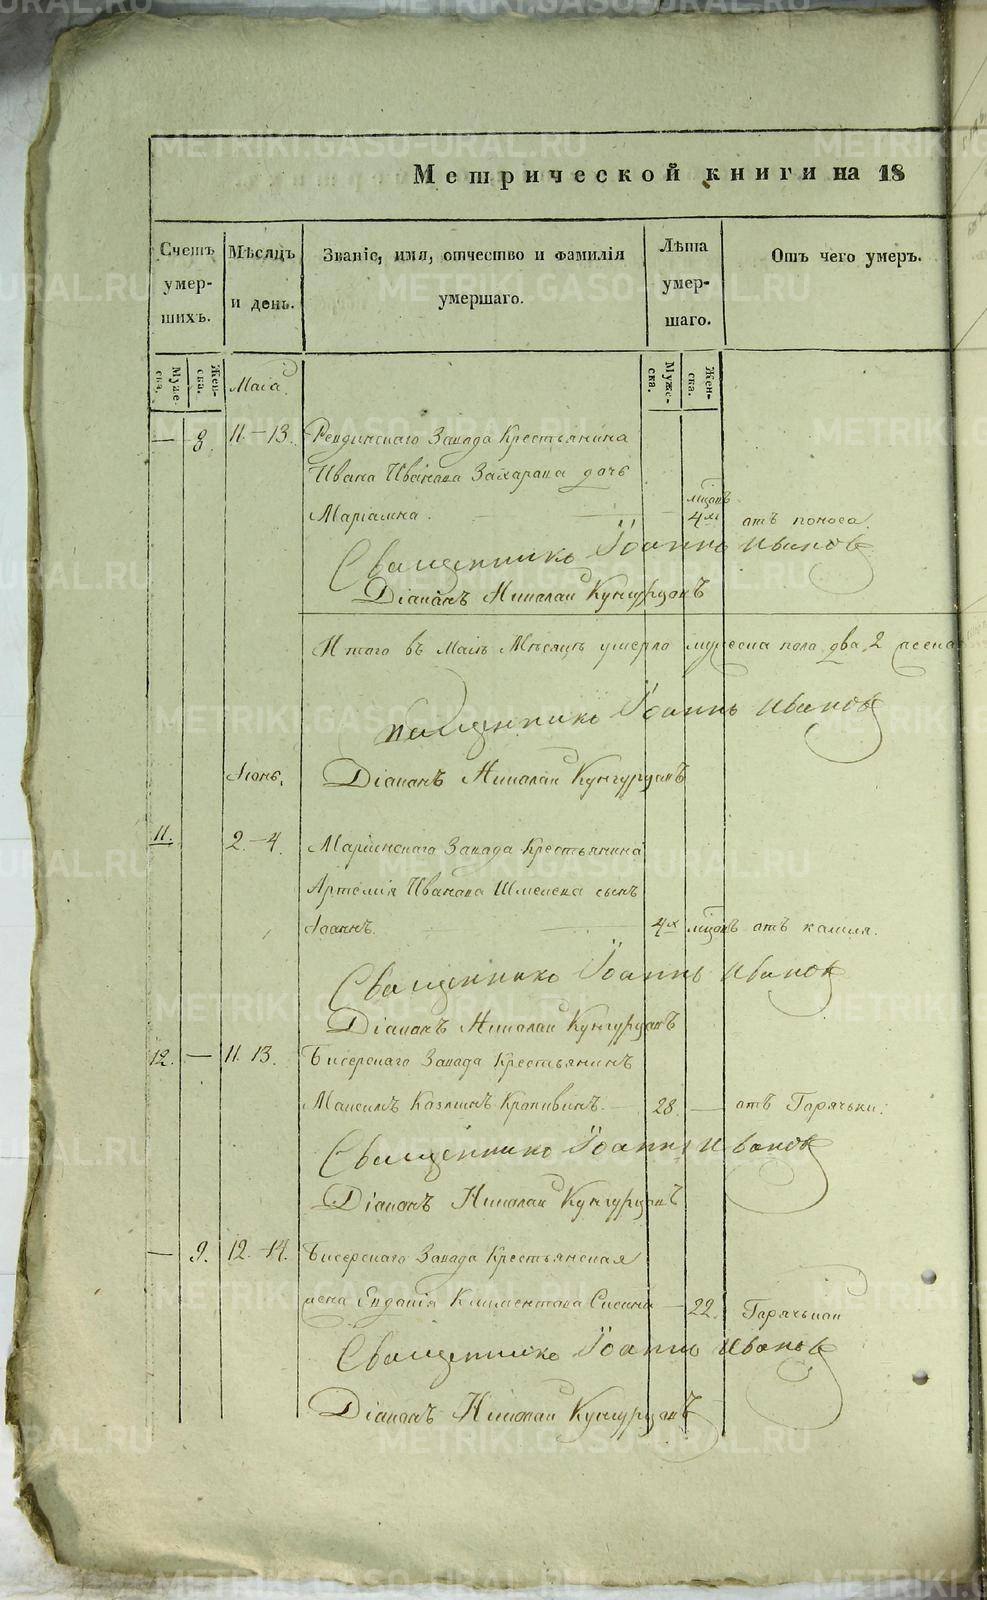 Метрической книги на 18
Счетъ умершихъ.
Мѣсяцъ и день.
Званіе, имя, отчество и фамилія умершаго.
Лѣта умершаго.
Отъ чего умеръ.
Муже-ска.
Жен-ска.
Муже-ска.
Жен-ска.
Маіа
— 8 11–13. Ревдинскаго Завода Крестьянина
Ивана Иванова Захарова дочь
мцовъ
Маріамна. 4хъ отъ поноса.
Священникъ Іоаннъ Ивановъ
Діаконъ Николай Кунгурцовъ
Итого въ Маіѣ Мѣсяцѣ умерло мужеска пола два, 2 женска
Священникъ Іоаннъ Ивановъ
Іюнь. Діаконъ Николай Кунгурцовъ
11. 2.–4. Маріинскаго Завода Крестьянина
Артемія Иванова Шмелева сынъ
Іоаннъ. 4х мцовъ отъ кашля.
Священникъ Іоаннъ Ивановъ
Діаконъ Николай Кунгурцовъ
12. — 11. 13. Бисерскаго Завода Крестьянинъ
Максимъ Крапивинъ. — 28 — отъ Горячьки.
Священникъ Іоаннъ Ивановъ
Діаконъ Николай Кунгурцовъ
— 9. 12.–14. Бисерскаго Завода Крестьянская
жена Климентова — 22. Горячькой
Священникъ Іоаннъ Ивановъ
Діаконъ Николай Кунгурцовъ
METRIKI.GASO-URAL.RU